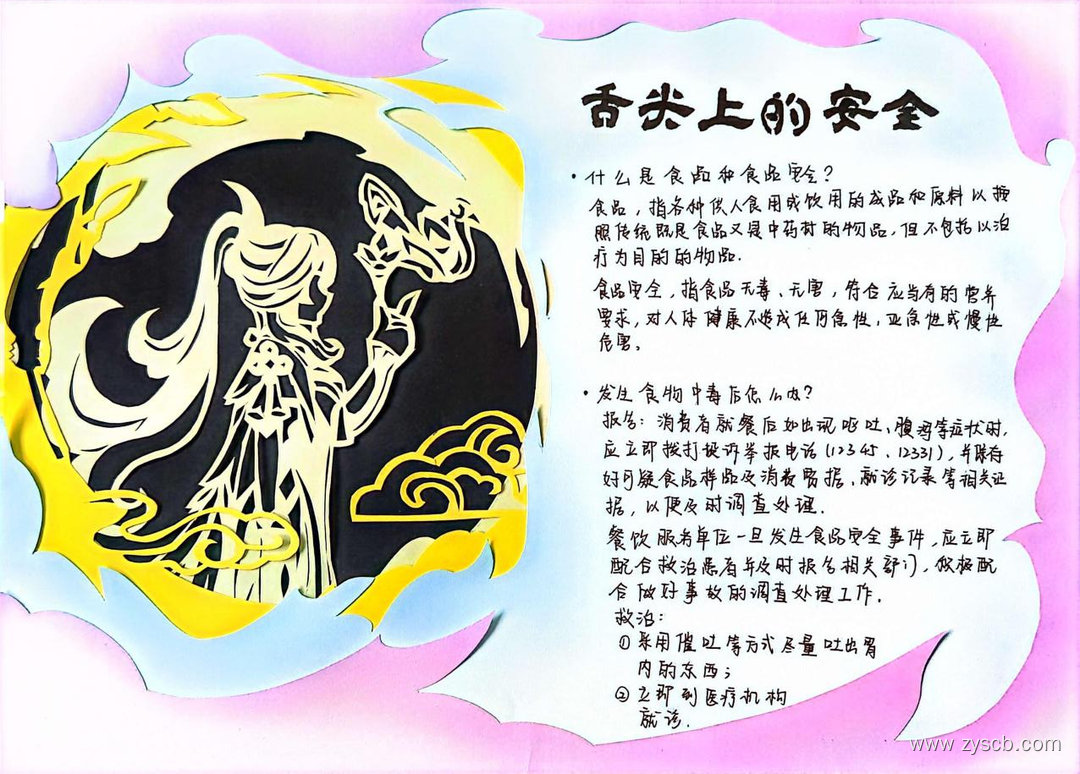 舌尖上的安全
·什么是食品和食品安全?
食品,指各种供人食用或饮用的成品和原料以按
照传统既是食品又是中药材的物品,但不包括以治
疗为目的的物品.
食品安全,指食品无毒、无害,符合应当有的营养
要求,对人体健康不造成任何急性,亚急性或慢性
危害。
·发生食物中毒后怎么办?
报告:消费者就餐后如出现呕吐、腹泻等症状时,
应立即拨打投诉举报电话(12345、12331),并保存
好可疑食品样品及消费票据,就诊记录等相关证
据,以便及时调查处理.
餐饮服务单位一旦发生食品安全事件,应立即
配合救治患者并及时报告相关部门,积极配
合做好事故的调查处理工作.
救治:
①采用催吐等方式尽量吐出胃
内的东西;
②立即到医疗机构
就诊.
www.zyscb.com